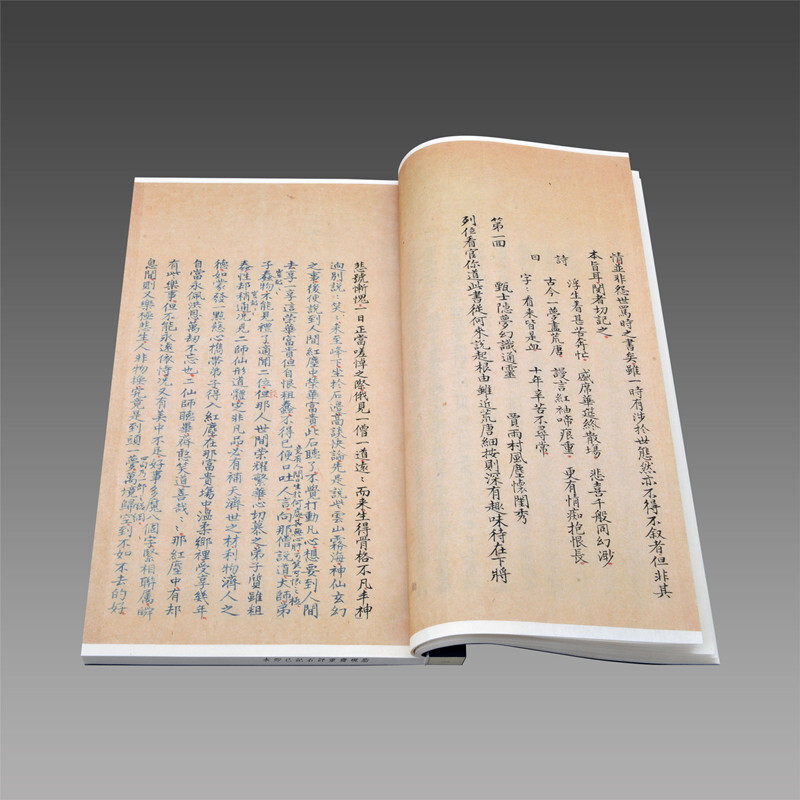 情並非怨世罵時之書矣雖一時有涉於世態然亦不得不叙者但非其
本旨耳閱者切記之
浮生着甚苦奔忙 盛席華筵終散場 悲喜千般同幻渺
詩 古今一夢盡荒唐 謾言紅袖啼痕重 更有情痴抱恨長
曰 字:看来皆是血 十年辛苦不尋常
第一回 甄士隱夢幻識通靈 賈雨村風塵懷閨秀
列位看官你道此書從何来說起根由雖近荒唐細按則深有趣味待在下將
悲號慚愧一日正當嗟悼之際俄見一僧一道遠:而来生得骨格不凡丰神
迥別說:笑:来至峰下坐於石邊高談快論先是說些雲山霧海神仙玄幻
之事後便說到人間紅塵中榮華富貴此石聽了不覺打動凡心想要到人間
去享一享這榮華富貴但自恨粗蠢不得已便口吐人言向那僧說道大師弟
竟有人問口生於何處其無心肝可笑可恨之極
子蠢物不能見禮了適聞二位但那人世間榮耀繁華心切慕之弟子質雖粗
蠢性却稍通况見二師仙形道體定非凡品必有補天濟世之材利物濟人之
德如蒙發一點慈心携帶弟子得入紅塵在那富貴場中溫柔鄉裡受享幾年
自當永佩洪恩萬劫不忘也二仙師聽畢齊憨笑道善哉::那紅塵中有却
有此樂事但不能永遠依恃况又有美中不足好事多魔八個字緊相聯屬瞬
息間則又樂極悲生人非物換究竟是到頭一夢萬境歸空到不如不去的好
四句乃一部之總綱
脂硯齋重評石頭記己卯本